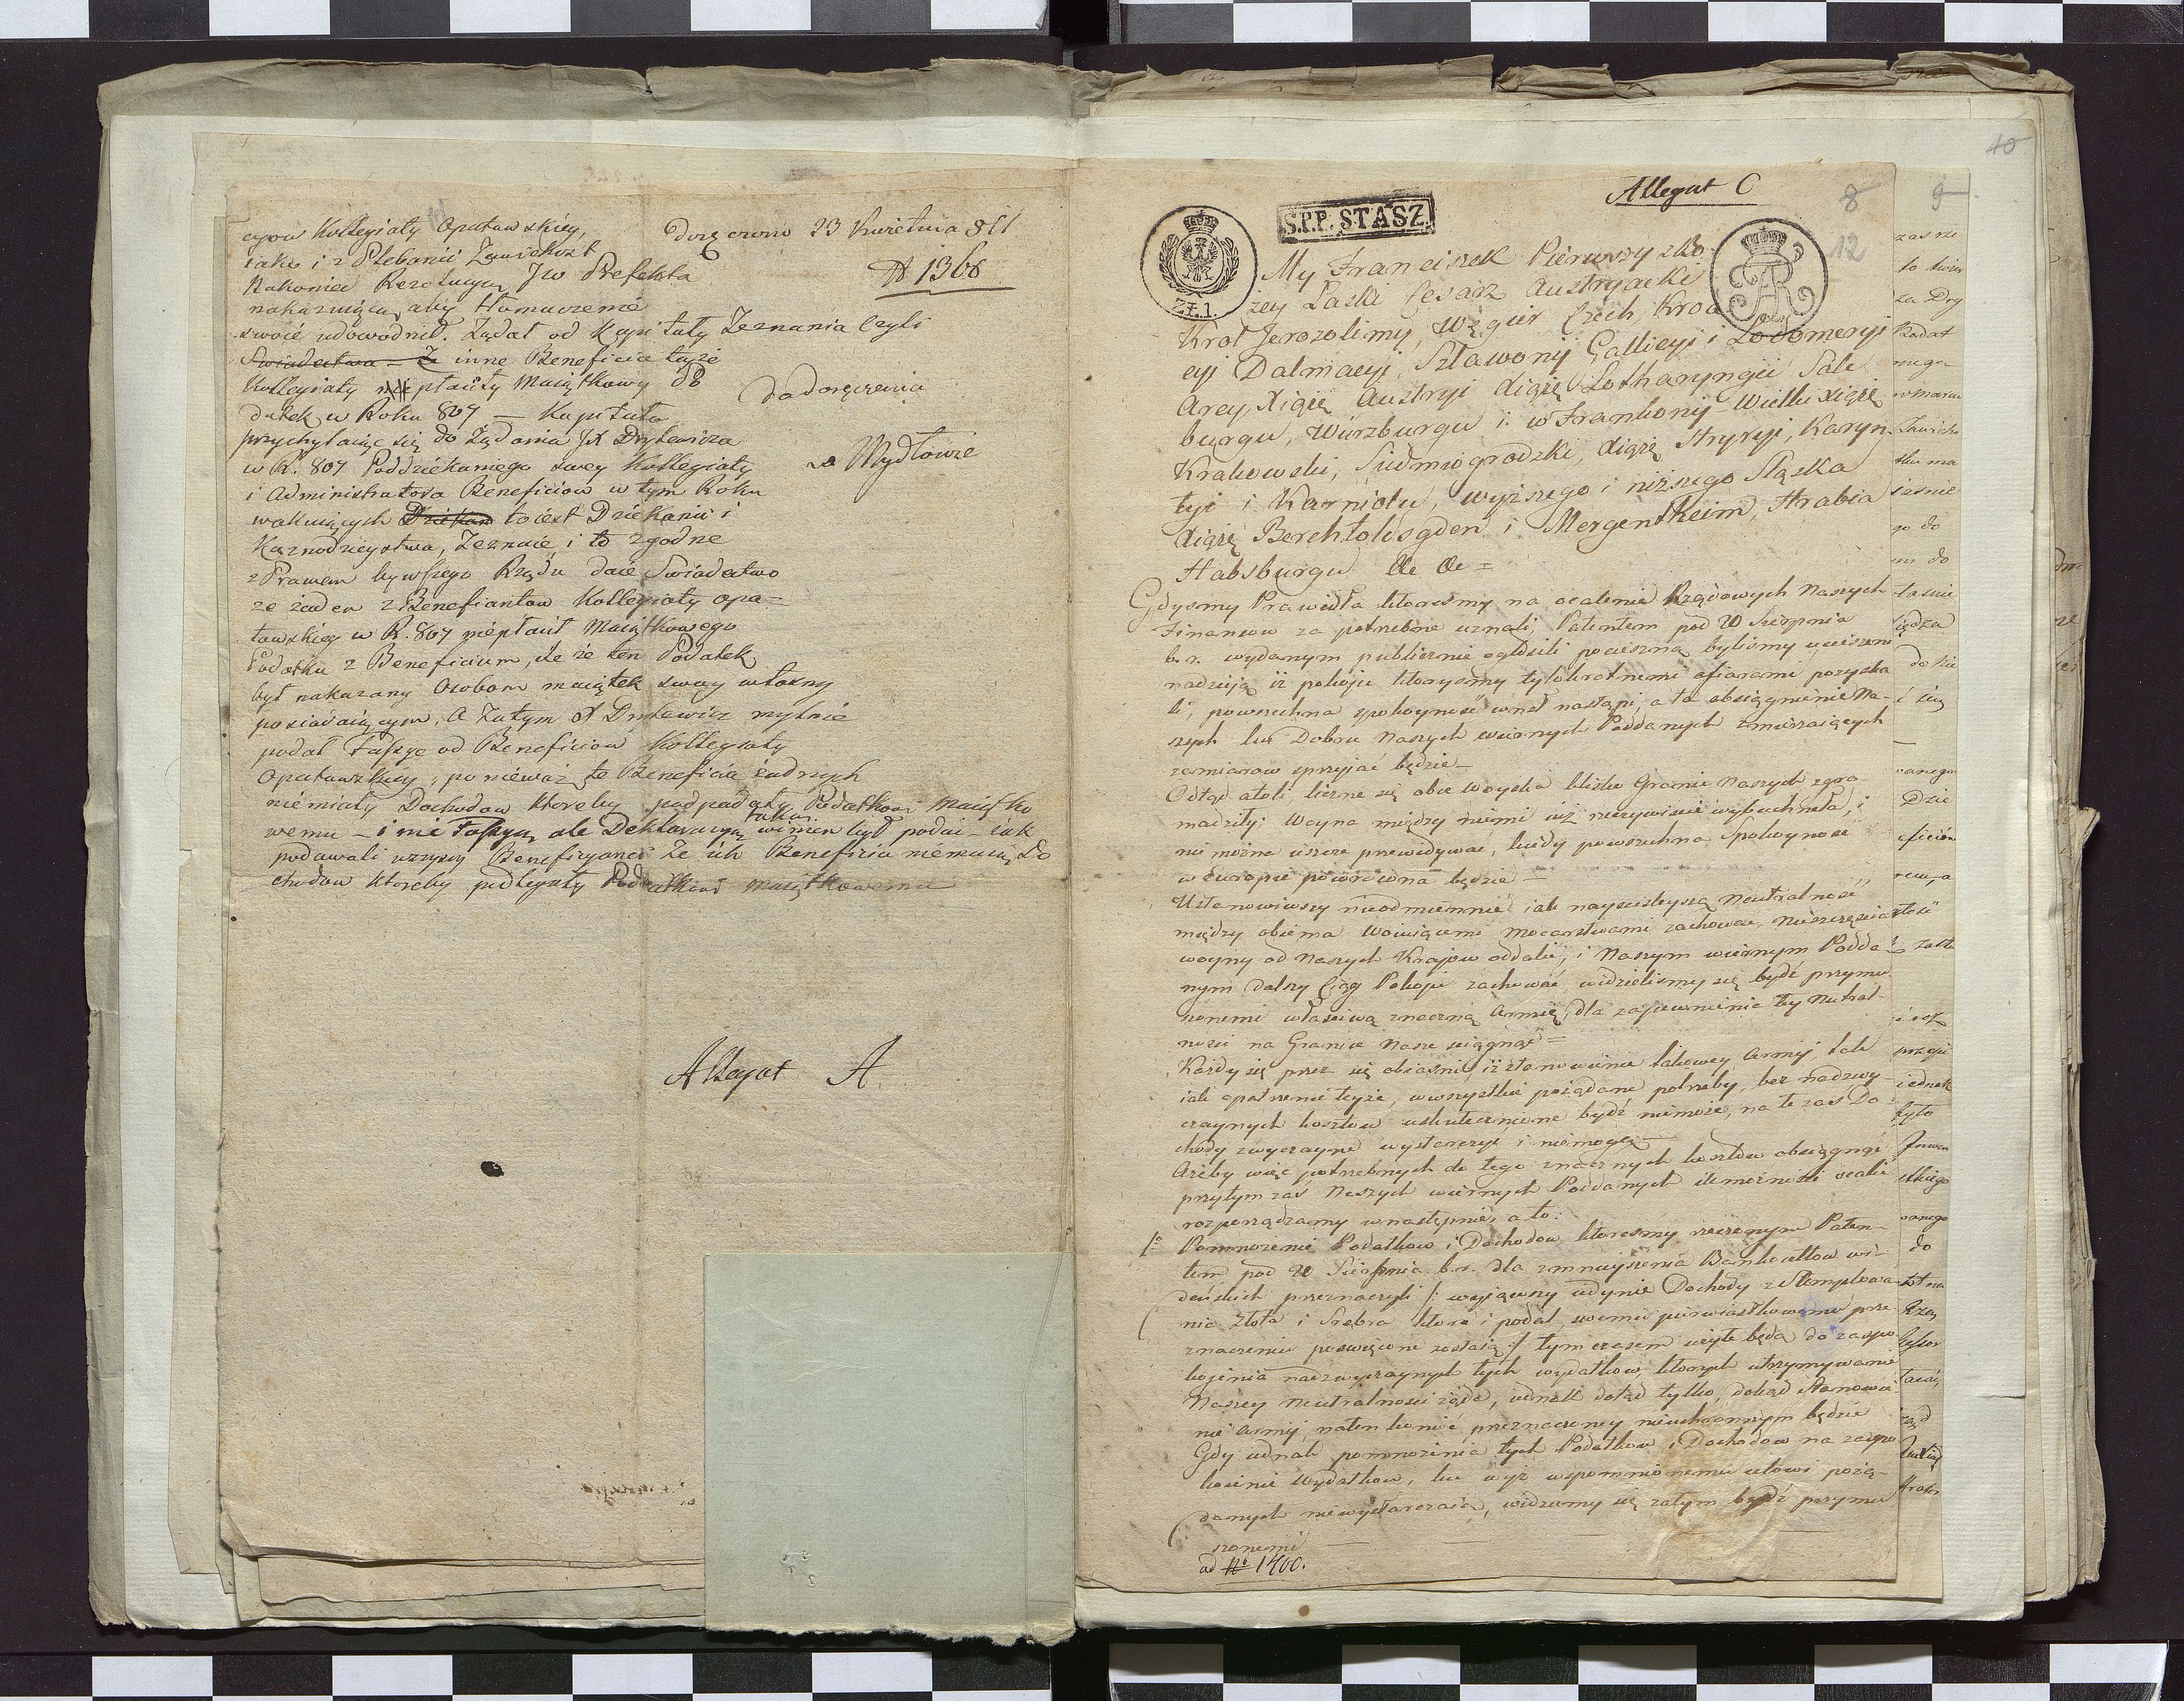 cyow Kollegiaty Opatowskiey,
iako i z Plebanii Zawichost
Nakoniec Rezolucyą JW Prefekta
nakazuiącą, aby tłomaczenie
swoie udowodnił. Żądał od Kapituły Zeznania czyli
Swiadectwa – Że inne Beneficia teyże
Kollegiaty nie płaciły Maiątkowy Po
datek w Roku 807 – Kapituła
przychylaiąc się do Żądania JX Drylewicza
w R. 807 Poddziekaniego swey Kollegiaty
i Administratora Beneficiow w tym Roku
wakuiących to iest Dziekanii i
Kaznodzieystwa, Zeznaie i to zgodne
z Prawem bywszego Rządu daie Swiadectwo
że żaden z Beneficiantow Kollegiaty Opa-
towskiey w R. 807 niepłacił Maiątkowego
Podatku z Beneficium, ile że ten Podatek
był nakazany Osobom maiątek swoy własny
posiadaiącym, A Zatym X Drylewicz mylnie
podał Fassyę od Beneficiow Kollegiaty
Opatowskiey, ponieważ te Beneficia żadnych
niemiały Dochodow ktoreby podpadały Podatkowi Maiątko
wemu – i nie Fassyą ale Deklaracyą taką winien był podać – iak
podawali wszyscy Beneficyanci Że ich Beneficia niemaią Do
chodow ktoreby podlegały Podatkowi maiątkowemu
Doręczono 23 Kwietnia 811
N 1368
Do doręczenia
w Mydłowie
Allegat A
40
Allegat C
8
9
12
S.P.P. STASZ.
Zł. 1.
My Franciszek Pierwszy z Bo
żey Łaski Cesarz Austryacki
Krol Jerozolimy, Węgier Czech, Kroa
cyi Dalmacyi, Sławonij Gallicyi i Lodomeryi
Arcy Xiąże Austryi Xiąże Lotharyngii Salc
burgu, Würzburgu i w Frankonij Wielki Xiąże
Krakowski, Siedmiogrodzki, Xiąże Styryi, Karyn
tyi i Karniolu, wyższego i niższego Sląska
Xiąże Berchtolsgden i Mergentheim, Hrabia
Habsburgu &c &c =
Gdyśmy Prawidła ktoresmy na ocalenie Rządowych Naszych
Finansow za potrzebne uznali, Patentem pod 20 Sierpnia
b. r. wydanym publicznie ogłosili pocieszną bylismy ucieszeni
nadzieią iż pokoju ktorysmy tylokrotnemi ofiarami pozyska
li, powszechna spokoyność wnet nastąpi, a ta obsiągnienie Na-
szych ku Dobru Naszych wiernych Poddanych zmierzaiących
zamiarow sprzyiać będzie –
Odtąd atoli liczne się obce Woyska blisko Granic Naszych zgro-
madziły; Woyna między niemi iuż rzeczywiscie wybuchneła, i
nie można ieszcze przewidywać, kiedy powszechna Spokoyność
w Europie powrocona będzie –
Ustanowiwszy nieodmiennie iak nayscisleyszą Neutralność
między obiema Woiuiącemi Mocarstwami zachować, nieszczęscia
woyny od Naszych Krajow oddalić, i Naszym wiernym Podda
nym dalszy Ciąg Pokoju zachować, widzielismy się bydź przymu
szonemi własciwą znaczną Armię, dla zapewnienia tey Neutral-
nosci na Granice Nasze sciągnąć =
Każdy się przez się obiasni, iż stanowienie takowey Armij, tak
iak opatrzenie teyże, w wszystkie pożądane potrzeby, bez nadzwy-
czaynych kosztow uskutecznione bydź niemoże, na te zas Do
chody zwyczayne wystarczyć i niemogą –
Ażeby więc potrzebnych do tego znacznych kosztow obsiągnąć
przytym zaś Naszych wiernych Poddanych ile możnosci ocalić
rozporządzamy w następnie, a to:
1o Pomnożenie Podatkow i Dochodow ktoresmy rzeczonym Paten-
tem pod 20 Sierpnia b. r. dla zmnieyszenia Bankocetlow wi-
deńskich przeznaczyli /: wyiąwszy iedynie Dochody z Stemplowa
nia złota i Srebra ktore i podał, swemu pierwiastkowemu prze
znaczeniu poswięcone zostaią :/ tym czasem użyte będą do zaspo
kojenia nadzwyczaynych tych wydatkow, ktorych utrzymywanie
Naszey Neutralnosci żąda, iednak dotąd tylko, dokąd Stanowie
nie Armij, naten koniec przeznaczoney nieuchronnym będzie
Gdy iednak pomnożenia tych Podatkow i Dochodow na zaspo
koienie Wydatkow, ku wyż wspomnionemu celowi pożą-
danych niewystarczaią, widziemy się zatym bydź przymu
szonemi –
ad N 1400.